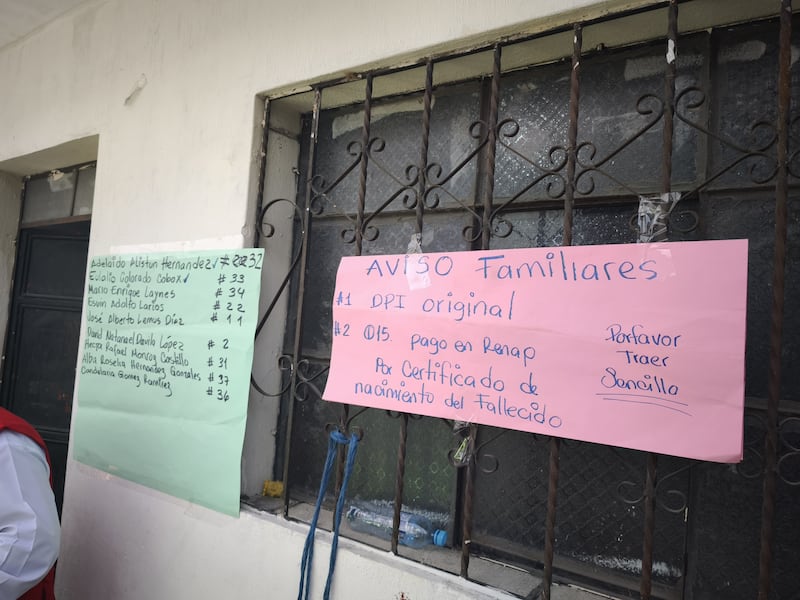 Adelaido Aliston Hernandez ✓ # 32
Eulalio Colorado Cobox ✓ # 33
Mario Enrique Laynes # 34
Esvin Adolfo Larios # 22
José Alberto Lemus Díaz # 11
David Natanael Davila López # 2
Rafael Monroy Castillo # 31
Alba Roselia Hernandez Gonzales # 37
Candelaria Gomez Ramirez # 36
AVISO Familiares
#1 DPI original
#2 Q15. pago en Renap
Por Certificado de
nacimiento del Fallecido
Porfavor
Traer
Sencillo